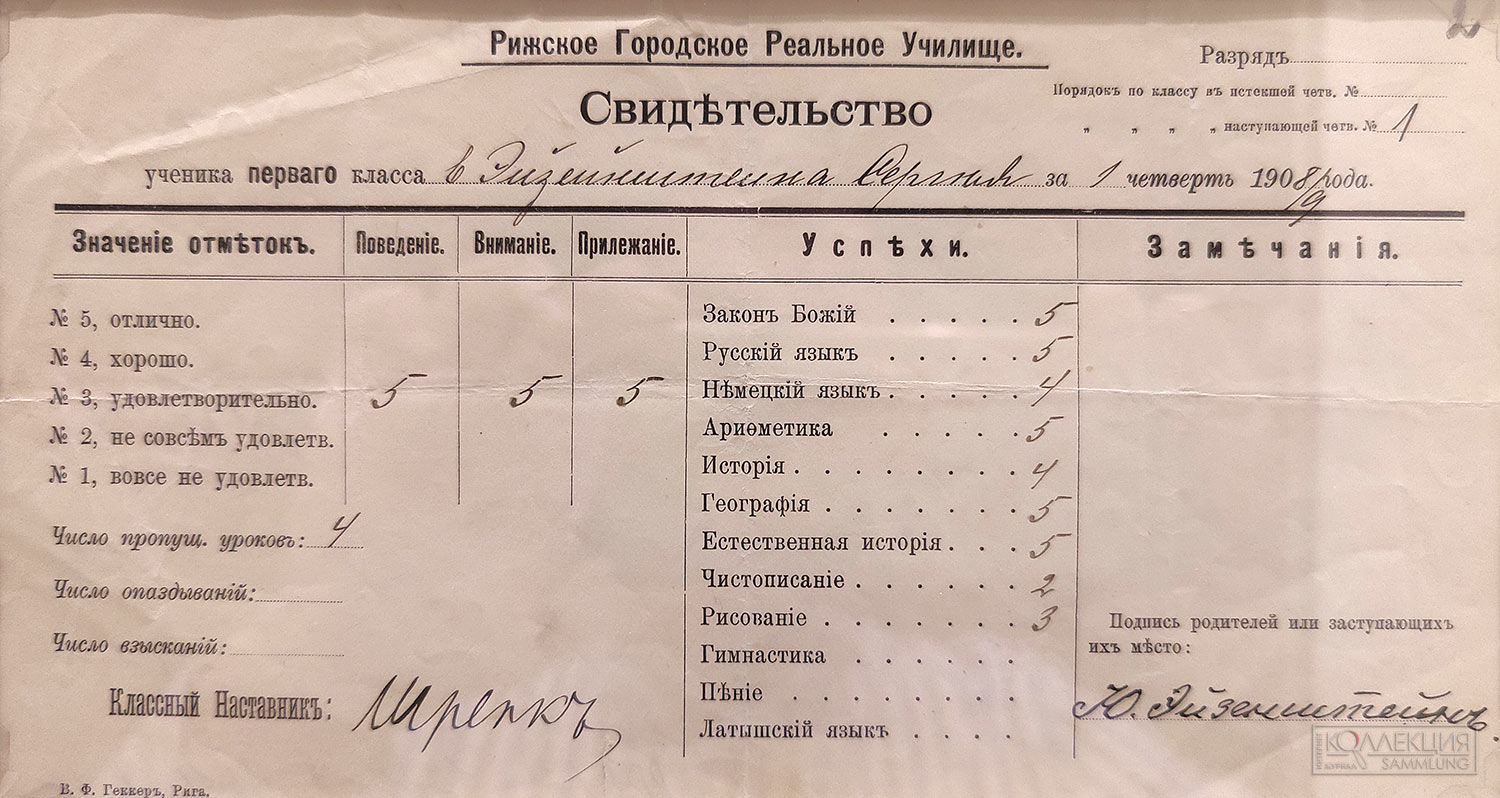 2
Рижское Городское Реальное Училище.
Разрядъ
Порядокъ по классу въ истекшей четв. №
Свидѣтельство
„ „ „ „ наступающей четв. № 1
ученика перваго класса в Эйзенштейна Сергѣя за 1 четверть 1908/9 года.
Значеніе отмѣтокъ. Поведеніе. Вниманіе. Прилежаніе. Успѣхи. Замѣчанія.
№ 5, отлично.
№ 4, хорошо.
№ 3, удовлетворительно. 5 5 5
№ 2, не совсѣмъ удовлетв.
№ 1, вовсе не удовлетв.
Число пропущ. уроковъ: 4
Число опаздываній:
Число взысканій:
Классный Наставникъ:
Законъ Божій 5
Русскій языкъ 5
Нѣмецкій языкъ 4
Ариѳметика 5
Исторія 4
Географія 5
Естественная исторія 5
Чистописаніе 2
Рисованіе 3
Гимнастика
Пѣніе
Латышскій языкъ
Подпись родителей или заступающихъ
ихъ мѣсто:
Ю. Эйзенштейнъ
В. Ф. Геккеръ, Рига.
ИНТЕРНЕТ ЖУРНАЛ КОЛЛЕКЦИЯ
SAMMLUNG